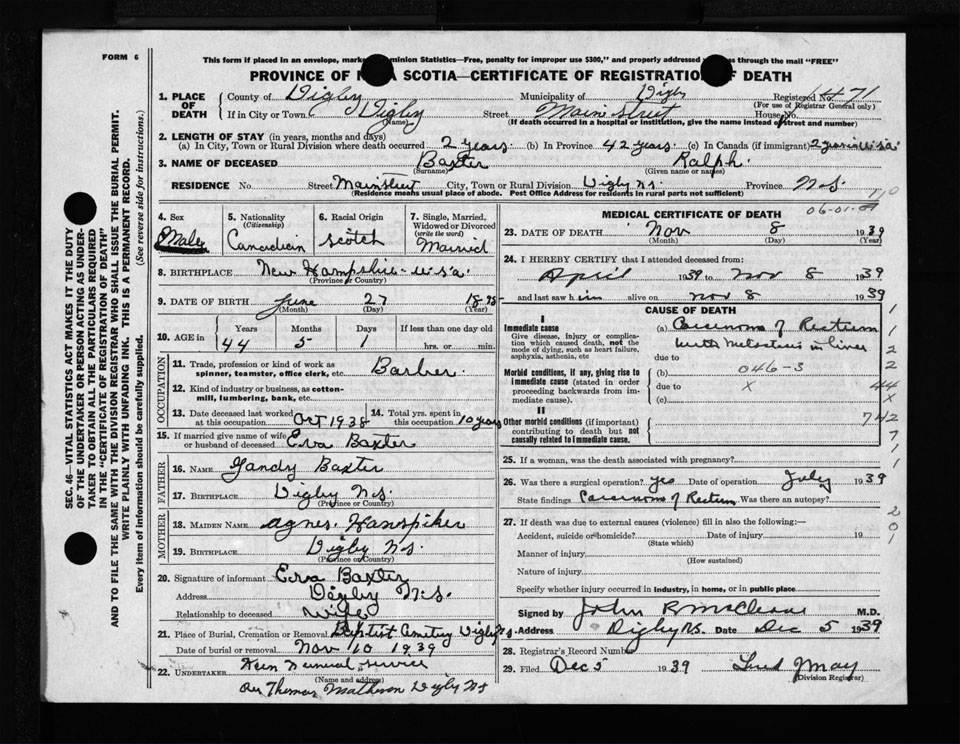 FORM 6
This form if placed in an envelope, marke minion Statistics—Free, penalty for improper use $300," and properly ss through the mail "FREE"
PROVINCE OF N A SCOTIA—CERTIFICATE OF REGISTRATION OF DEATH
1. PLACE OF DEATH County of Digby Municipality of Digby Registered No. 471
(For use of Registrar General only)
If in City or Town Digby (Name) Street Main Street House No.
(If death occurred in a hospital or institution, give the name instead of street and number)
2. LENGTH OF STAY (in years, months and days)
(a) In City, Town or Rural Division where death occurred 2 years. (b) In Province 42 years. (c) In Canada (if immigrant) 2 years in U.S.A.
3. NAME OF DECEASED Baxter Ralph.
(Surname) (Given name or names)
RESIDENCE No. Street Main Street City, Town or Rural Division Digby N.S. Province N.S.
(Residence means usual place of abode. Post Office Address for residents in rural parts not sufficient)
SEC. 46—VITAL STATISTICS ACT MAKES IT THE DUTY
OF THE UNDERTAKER OR PERSON ACTING AS UNDER-
TAKER TO OBTAIN ALL THE PARTICULARS REQUIRED
IN THE "CERTIFICATE OF REGISTRATION OF DEATH"
AND TO FILE THE SAME WITH THE DIVISION REGISTRAR WHO SHALL ISSUE THE BURIAL PERMIT.
WRITE PLAINLY WITH UNFADING INK. THIS IS A PERMANENT RECORD.
Every item of information should be carefully supplied. (See reverse side for instructions.)
4. Sex Male
5. Nationality (Citizenship) Canadian
6. Racial Origin Scotch
7. Single, Married, Widowed or Divorced (write the word) Married
8. BIRTHPLACE New Hampshire - U.S.A.
(Province or Country)
9. DATE OF BIRTH June 27 1895
(Month) (Day) (Year)
10. AGE in Years 44 Months 5 Days 1 If less than one day old hrs. or min.
OCCUPATION
11. Trade, profession or kind of work as spinner, teamster, office clerk, etc. Barber.
12. Kind of industry or business, as cotton-mill, lumbering, bank, etc.
13. Date deceased last worked at this occupation Oct 1938
14. Total yrs. spent in this occupation 10 years
15. If married give name of wife or husband of deceased Eva Baxter
FATHER
16. NAME Gandy Baxter
17. BIRTHPLACE Digby N.S.
(Province or Country)
MOTHER
18. MAIDEN NAME Agnes Hanspiker
19. BIRTHPLACE Digby N.S.
(Province or Country)
20. Signature of informant Eva Baxter
Address Digby N.S.
Relationship to deceased Wife
21. Place of Burial, Cremation or Removal Baptist Cemetery Digby N.S.
Date of burial or removal Nov 10 1939
22. UNDERTAKER service
(Name and address)
Per Thomas Matheson Digby N.S
MEDICAL CERTIFICATE OF DEATH
06-01-
23. DATE OF DEATH Nov 8 1939
(Month) (Day) (Year)
24. I HEREBY CERTIFY that I attended deceased from:
April 1939 to Nov 8 1939
and last saw h im alive on Nov 8 1939
CAUSE OF DEATH
I
Immediate cause
Give disease, injury or complication which caused death, not the mode of dying, such as heart failure, asphyxia, asthenia, etc
(a) Carcinoma of Rectum
with Metastasis in liver
due to
Morbid conditions, if any, giving rise to immediate cause (stated in order proceeding backwards from immediate cause).
(b) 046-3
due to X
(c)
II
Other morbid conditions (if important) contributing to death but not causally related to immediate cause.
1
1
2
2
44
X
742
7
1
201
25. If a woman, was the death associated with pregnancy?
26. Was there a surgical operation? yes Date of operation July 1939
State findings Carcinoma of Rectum Was there an autopsy?
27. If death was due to external causes (violence) fill in also the following:—
Accident, suicide or homicide? Date of injury 19
(State which)
Manner of injury
(How sustained)
Nature of injury
Specify whether injury occurred in industry, in home, or in public place
Signed by John R. McCleave M.D.
Address Digby N.S. Date Dec 5 1939
28. Registrar's Record Number
29. Filed Dec 5 1939 May
(Division Registrar)